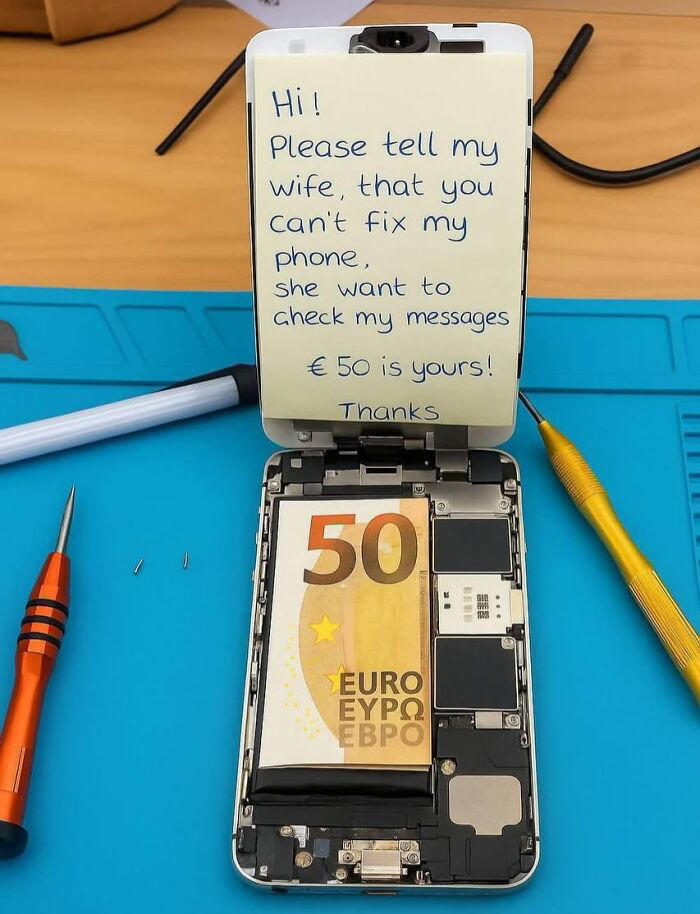 Hi!
Please tell my
wife, that you
can't fix my
phone,
she want to
check my messages
€ 50 is yours!
Thanks
50
EURO
ΕΥΡΩ
ЕВРО